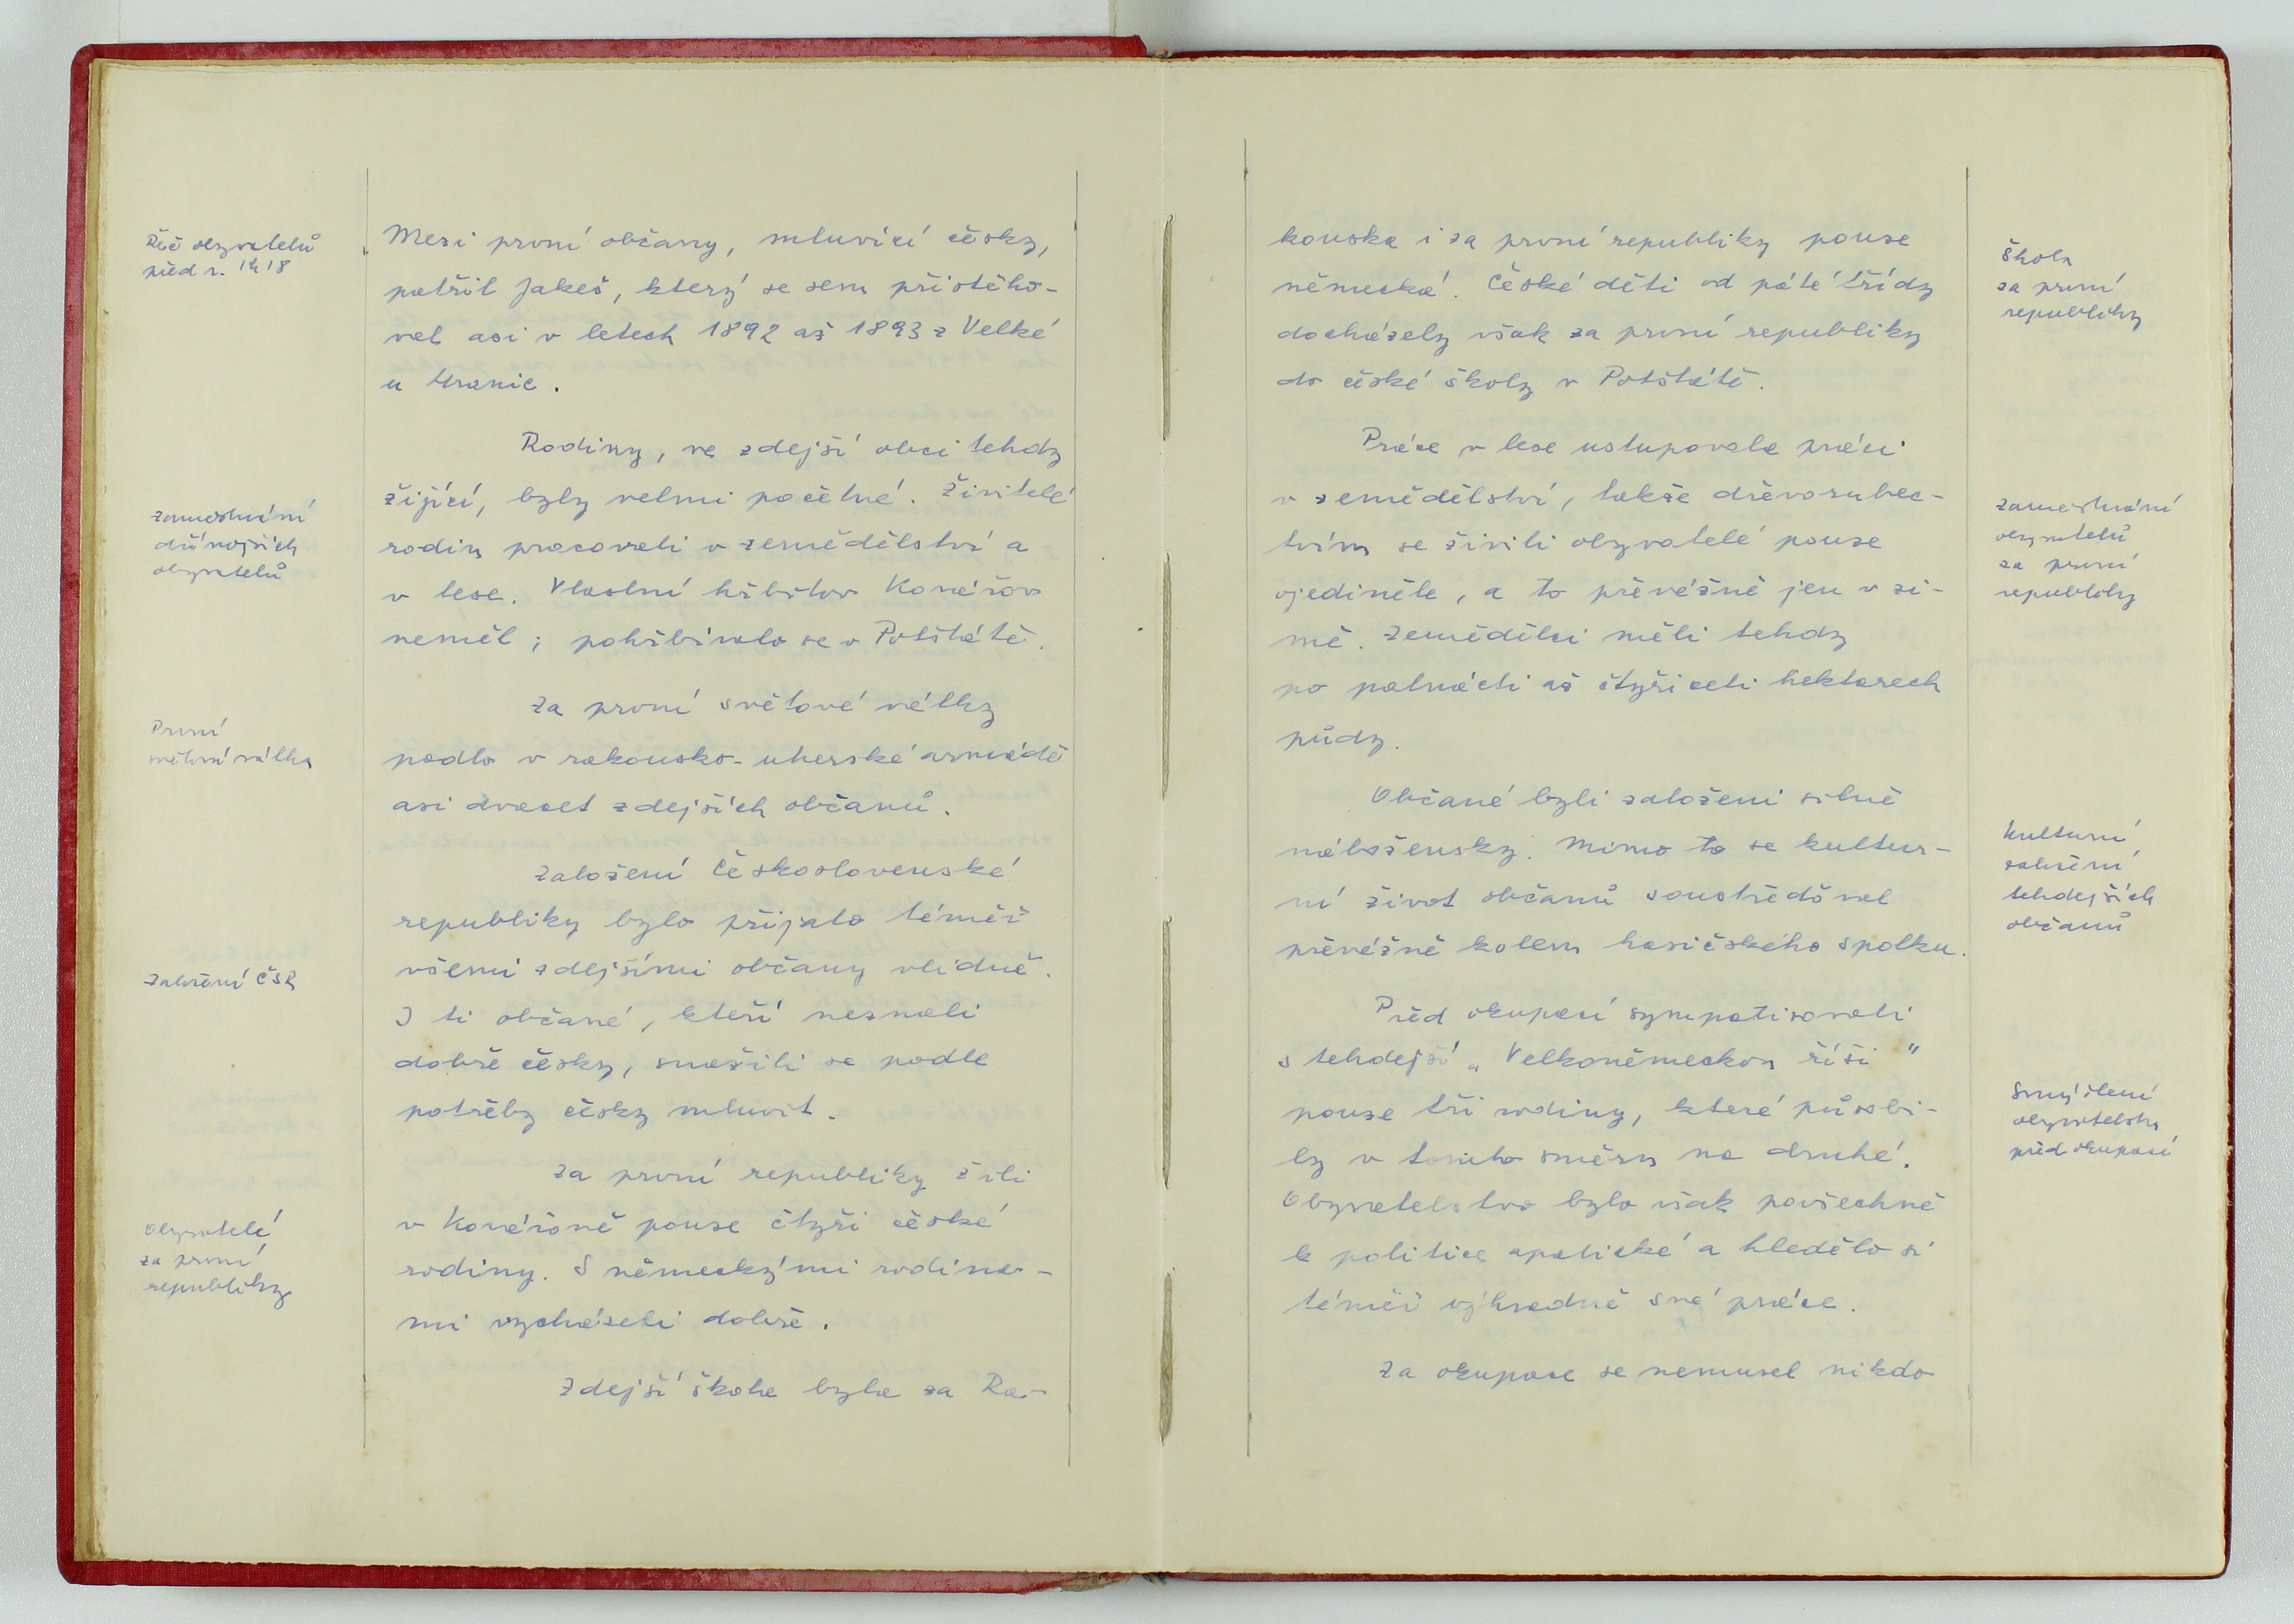 Řeč obyvatelů
před r. 1918
Mezi první občany, mluvící česky,
patřil Jakeš, který se sem přistěho-
val asi v letech 1892 až 1893 z Velké
u Hranic.
Rodiny, ve zdejší obci tehdy
žijící, byly velmi početné. Živitelé
rodin pracovali v zemědělství a
v lese. Vlastní hřbitov Kovářov
neměl; pohřbívalo se v Potštátě.
Zaměstnání
dřívějších
obyvatelů
Za první světové války
padlo v rakousko-uherské armádě
asi dvacet zdejších občanů.
První
světová válka
Založení Československé
republiky bylo přijato téměř
všemi zdejšími občany vlídně.
I ti občané, kteří neznali
dobře česky, snažili se podle
potřeby česky mluvit.
Založení ČSR
Za první republiky žili
v Kovářově pouze čtyři české
rodiny. S německými rodina-
mi vycházeli dobře.
Obyvatelé
za první
republiky
Zdejší škola byla za Ra-
kouska i za první republiky pouze
německá. České děti od páté třídy
docházely však za první republiky
do české školy v Potštátě.
Škola
za první
republiky
Práce v lese ustupovala práci
v zemědělství, takže dřevorubec-
tvím se živili obyvatelé pouze
ojediněle, a to převážně jen v zi-
mě. Zemědělci měli tehdy
po patnácti až čtyřiceti hektarech
půdy.
Zaměstnání
obyvatelů
za první
republiky
Občané byli založeni silně
nábožensky. Mimo to se kultur-
ní život občanů soustřeďoval
převážně kolem hasičského spolku.
Kulturní
založení
tehdejších
občanů
Před okupací sympatisovali
s tehdejší „Velkoněmeckou říší"
pouze tři rodiny, které působi-
ly v tomto směru na druhé.
Obyvatelstvo bylo však povšechně
k politice apatické a hledělo si
téměř výhradně své práce.
Smýšlení
obyvatelstva
před okupací
Za okupace se nemusel nikdo